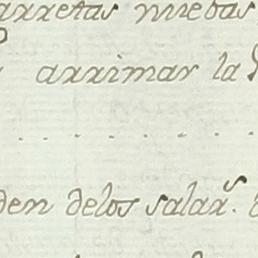 arretas nuebas
arrimar la
den delos salar.^s